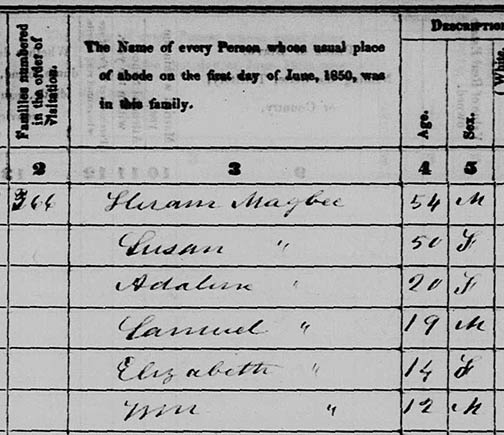 Families numbered in the order of visitation.
The Name of every Person whose usual place
of abode on the first day of June, 1850, was
in this family.
Description
Age.
Sex.
White,
2 3 4 5
366 Hiram Magbee 54 M
Susan " 50 F
Adaline " 20 F
Samuel " 19 M
Elizabeth " 14 F
Wm " 12 M